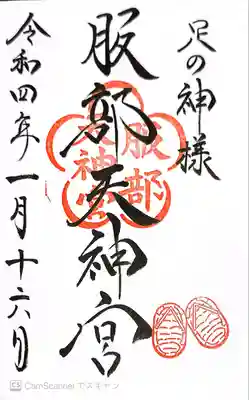 足の神様
服部天神宮
服部天神宮
令和四年一月十六日
CS CamScanner でスキャン